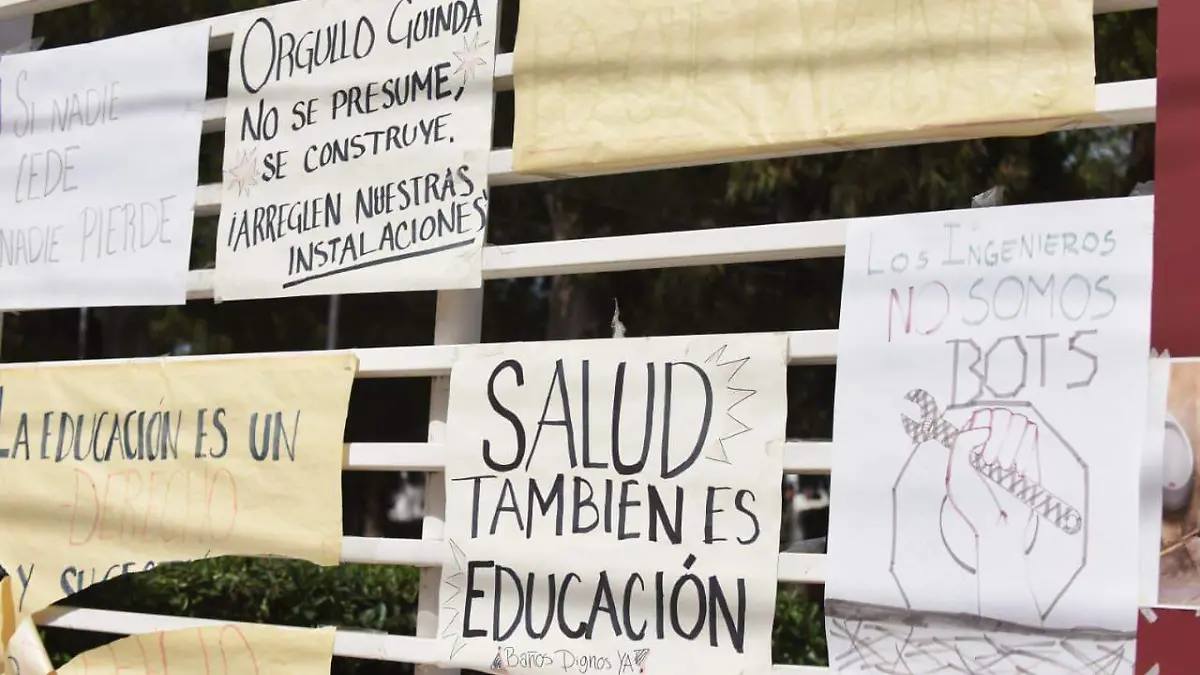 SI NADIE
CEDE
NADIE PIERDE
ORGULLO GUINDA
NO SE PRESUME,
SE CONSTRUYE.
¡ARREGLEN NUESTRAS
INSTALACIONES
LOS INGENIEROS
NO SOMOS
BOTS
LA EDUCACIÓN ES UN
DERECHO
Y
SALUD
TAMBIEN ES
EDUCACIÓN
¡BAÑOS DIGNOS YA!